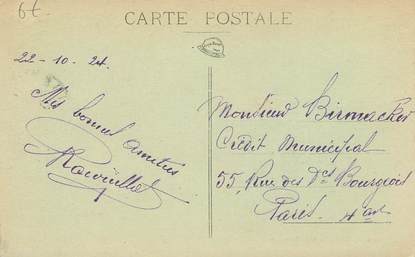 6 €
CARTE POSTALE
22-10-24.
Mes bonnes amitiés
Monsieur Birmacker
Crédit Municipal
55, Rue des Fcs Bourgeois
Paris. 4 arrt